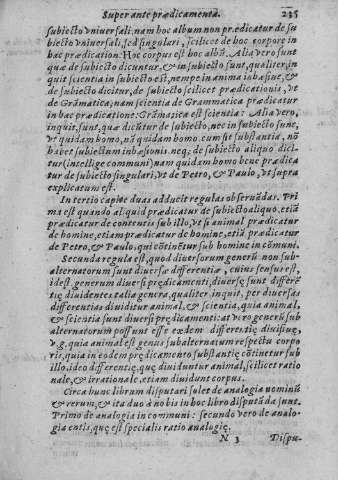 Super ante prædicamenta. 235
subiecto vniuersali, nam hoc album non prædicatur de su
biecto vniuersali, sed singulari, scilicet de hoc corpore in
hac prædication. Hoc corpus est hoc albū. Alia vero sunt
quæ de subiecto dicuntur, & in subiecto sunt, qualiter, in
quit scientia in subiecto est, nempe in anima inhæsiuè, &
de subiecto dicitur, de subiecto scilicet prædicationis, vt
de Grāmatica, nam scientia de Grammatica prædicatur
in hac prædicatione: Grāmatica est scientia: Alia vero,
inquit, sunt, quæ dicūtur de subiecto, nec in subiecto sunt,
vt quidam homo, nā quidam homo cum sit substantia, nō
habet subiectum inhæsionis, neq; de subiecto aliquo dici
tur (intellige communi) nam quidam homo bene prædica
tur de subiecto singulari, vt de Petro, & Paulo, vt supra
explicatum est.
In tertio capite duas adducit regulas obseruādas. Pri
ma est quando aliquid prædicatur de subiecto aliquo, etiā
prædicatur de contentis sub illo, vt si animal prædicatur
de homine, etiam prædicatur de homine, etiā prædicatur
de Petro, & Paulo, qui cōtinētur sub homine in cōmuni.
Secunda regula est, quod diuersorum generū non sub-
alternatorum sunt diuersæ differentiæ, cuius sensus est,
id est, generum diuersi prędicamenti, diuersę sunt differē-
tię diuidentes talia genera, qualiter, inquit, per diuersas
differentias diuiditur animal, & scientia, quia animal,
& scientia sunt diuersi prędicamenti: at vero generū sub
alternatorum possunt esse eædem differentię diuisiuę,
v.g. quia animal est genus subalternatum respectu corpo
ris, quia in eodem prędicamento substantię cōtinetur sub
illo, ideo differentię, quę diuiduntur animal, scilicet ratio
nale, & irrationale, etiam diuidunt corpus.
Circa hunc librum disputari solet de analogia nominū
& rerum, & ita duo à nobis in hoc libro disputāda sunt.
Primo de analogia in communi: secundo vero de analo-
gia entis, quę est specialis ratio analogię.
N 3 Dispu-